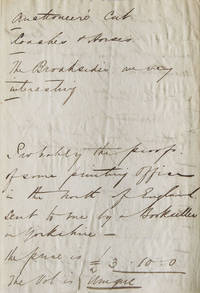 Auctioneer's Cat
Coaches & Horses
The Broadsides are very
interesting
Probably the proofs
of some printing office
in the North of England
sent to me by a Bookseller
in Yorkshire —
The price is = 3 - 10 - 0
The Vol is Unique